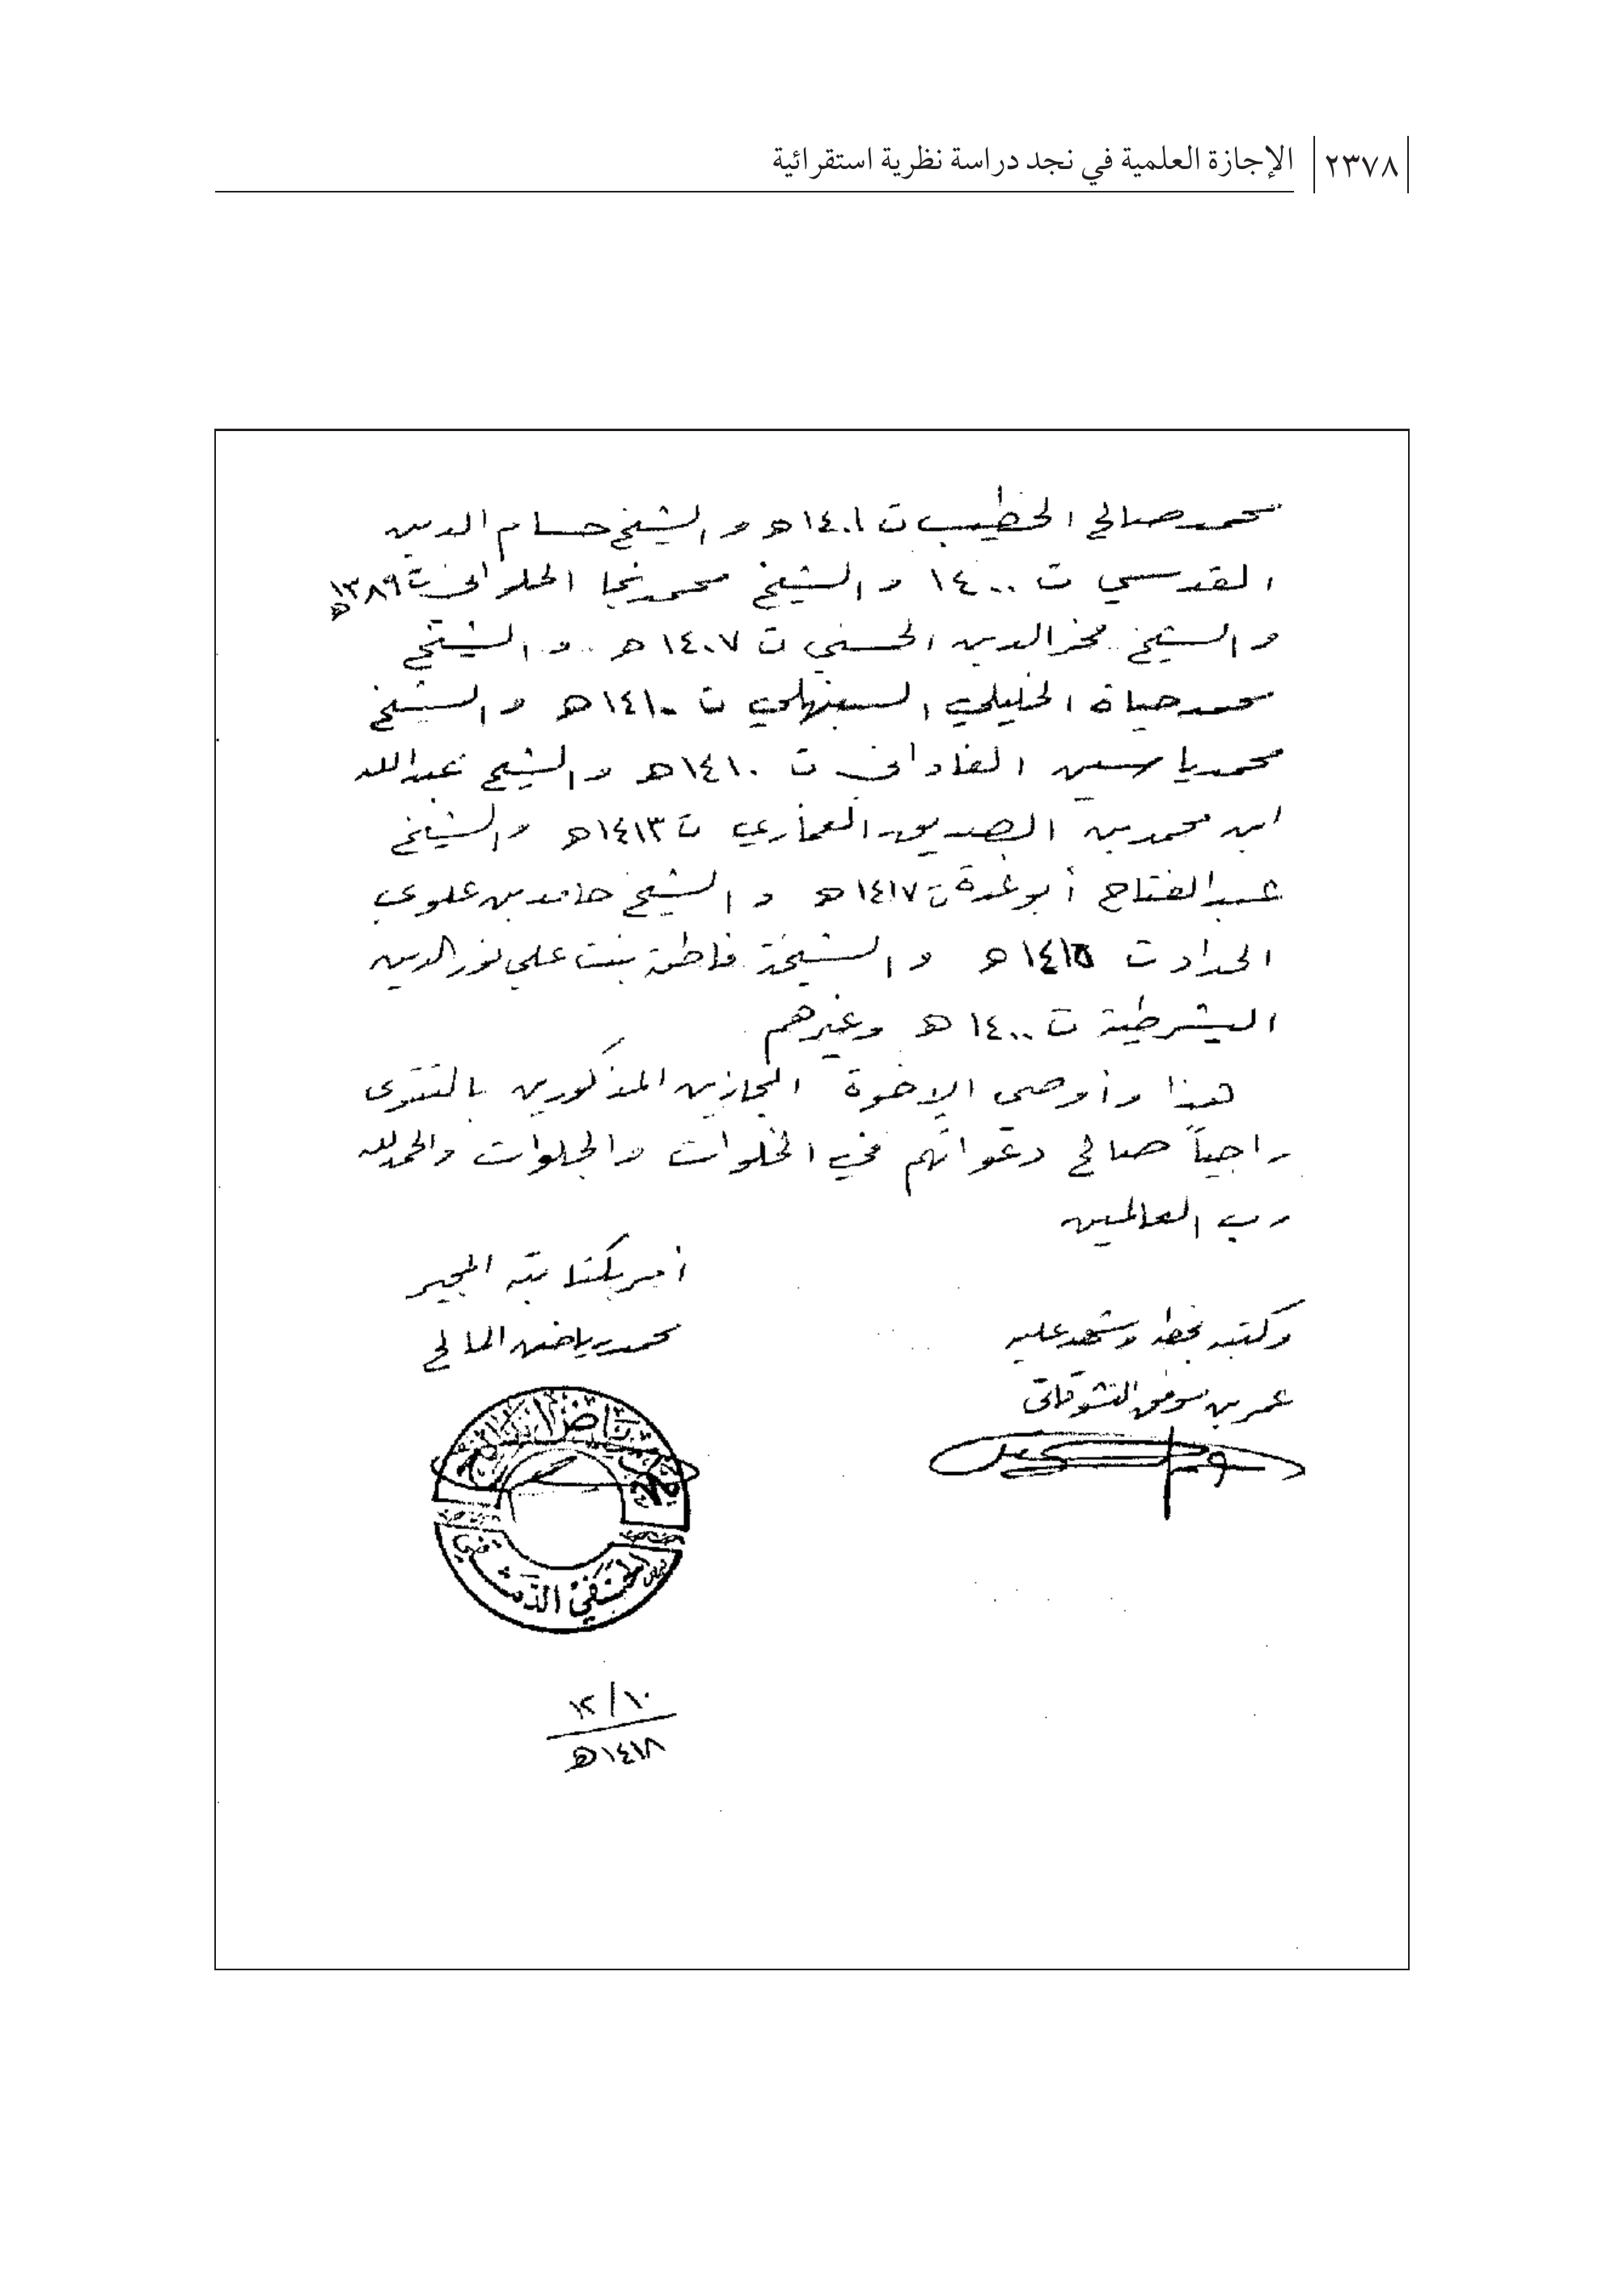 ٢٣٧٨ الإجازة العلمية في نجد دراسة نظرية استقرائية
محمد صالح الخطيب ت ١٤٠١ه والشيخ حسام الدين
القدسي ت ١٤٠٠ والشيخ محمد نجا الحلواني ت ١٣٨٩ه
والشيخ فخر الدين الحسني ت ١٤٠٧ه والشيخ
محمد حياة الخليلي السنبهلي ت ١٤١٠ه والشيخ
محمد ياسين الفاداني ت ١٤١٠ه والشيخ عبد الله
ابن محمد بن الصديق الغماري ت ١٤١٣ه والشيخ
عبد الفتاح أبو غدة ت ١٤١٧ه والشيخ حامد بن علوي
الحداد ت ١٤١٥ه والشيخة فاطمة بنت علي نور الدين
اليشرطية ت ١٤٠٠ه وغيرهم
هذا وأوصي الإخوة المجازين المذكورين بالتقوى
راجياً صالح دعواتهم في الخلوات والجلوات والحمد لله
رب العالمين
أمر بكتابته المجيز
محمد رياض المالح
وكتبه بخطه وشهد عليه
عمر بن موفق النشوقاتي
رياض المالح
الحنفي الدمشقي
١٠/١٢
١٤١٨ه